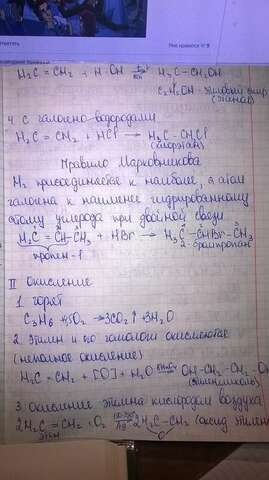 H₂C = CH₂ + H OH → H₃C - CH₂OH
C₂H₅OH - этиловый спирт
(этанол)
4. С галогено-водородами
H₂C = CH₂ + HCl → H₃C - CH₂Cl
(хлорэтан)
Правило Марковникова
H₂ присоединяется к наиболее, а атом
галогена к наименее гидрированному
атому углерода при двойной связи
H₂C = CH - CH₃ + HBr → H₃C - CHBr - CH₃
пропен-1 2-бромпропан
II Окисление
1. горят
2. Этилен и его гомологи окисляются
(неполное окисление)
H₂C = CH₂ + [O] + H₂O → OH - CH₂ - CH₂ - OH
(этиленгликоль)
3. окисление этилена кислородом воздуха
2H₂C = CH₂ + O₂ → 2H₂C - CH₂ (оксид этилена
этен O